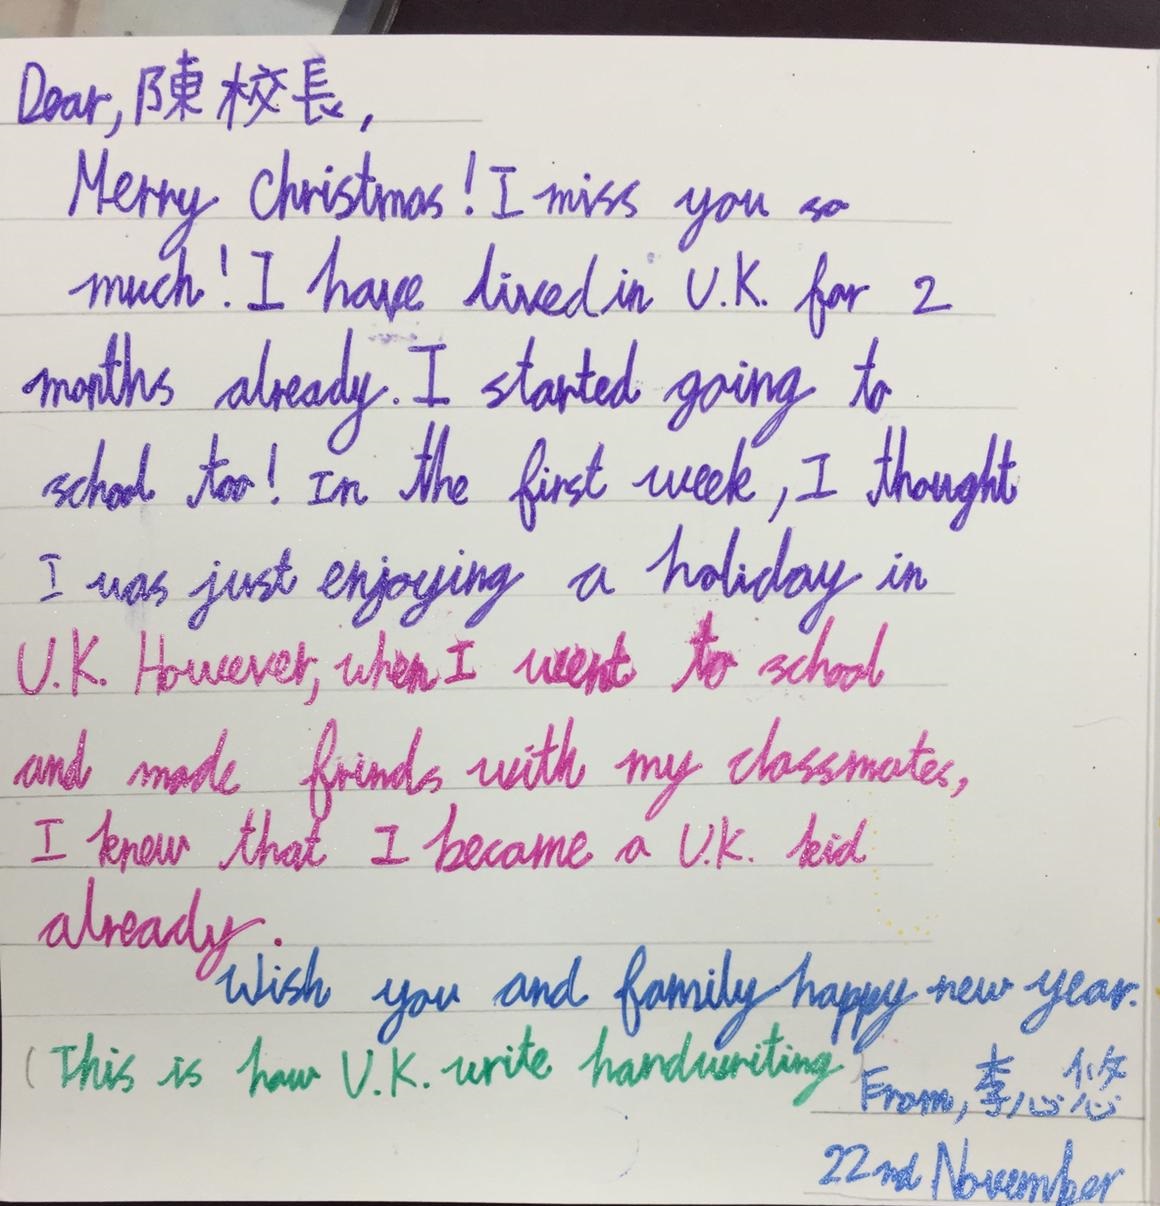 Dear, 陳校長,
Merry Christmas! I miss you so
much! I have lived in U.K. for 2
months already. I started going to
school too! In the first week, I thought
I was just enjoying a holiday in
U.K. However, when I went to school
and made frinds with my classmates,
I knew that I became a U.K. kid
already.
Wish you and family happy new year.
(This is how U.K. write handwriting)
From, 李心悠
22nd November